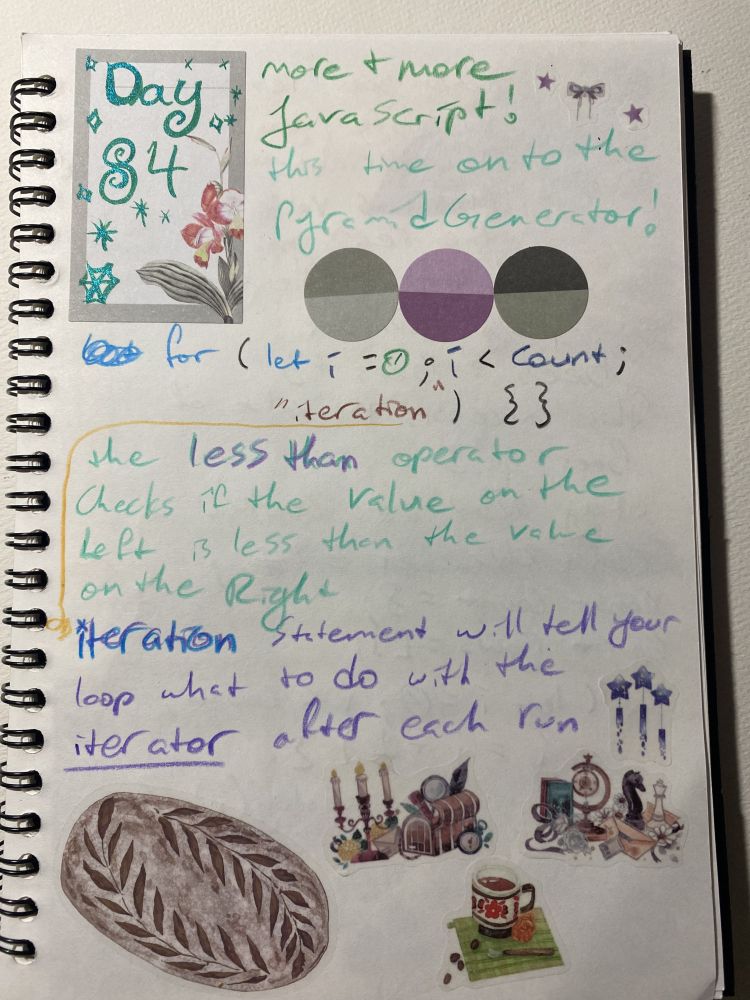 Day
84
more + more
JavaScript!
this time on to the
PyramidGenerator!
for ( let i = 0 ; i < count ;
"iteration" ) { }
the less than operator
Checks if the value on the
Left is less than the value
on the Right
*iteration statement will tell your
loop what to do with the
iterator after each run